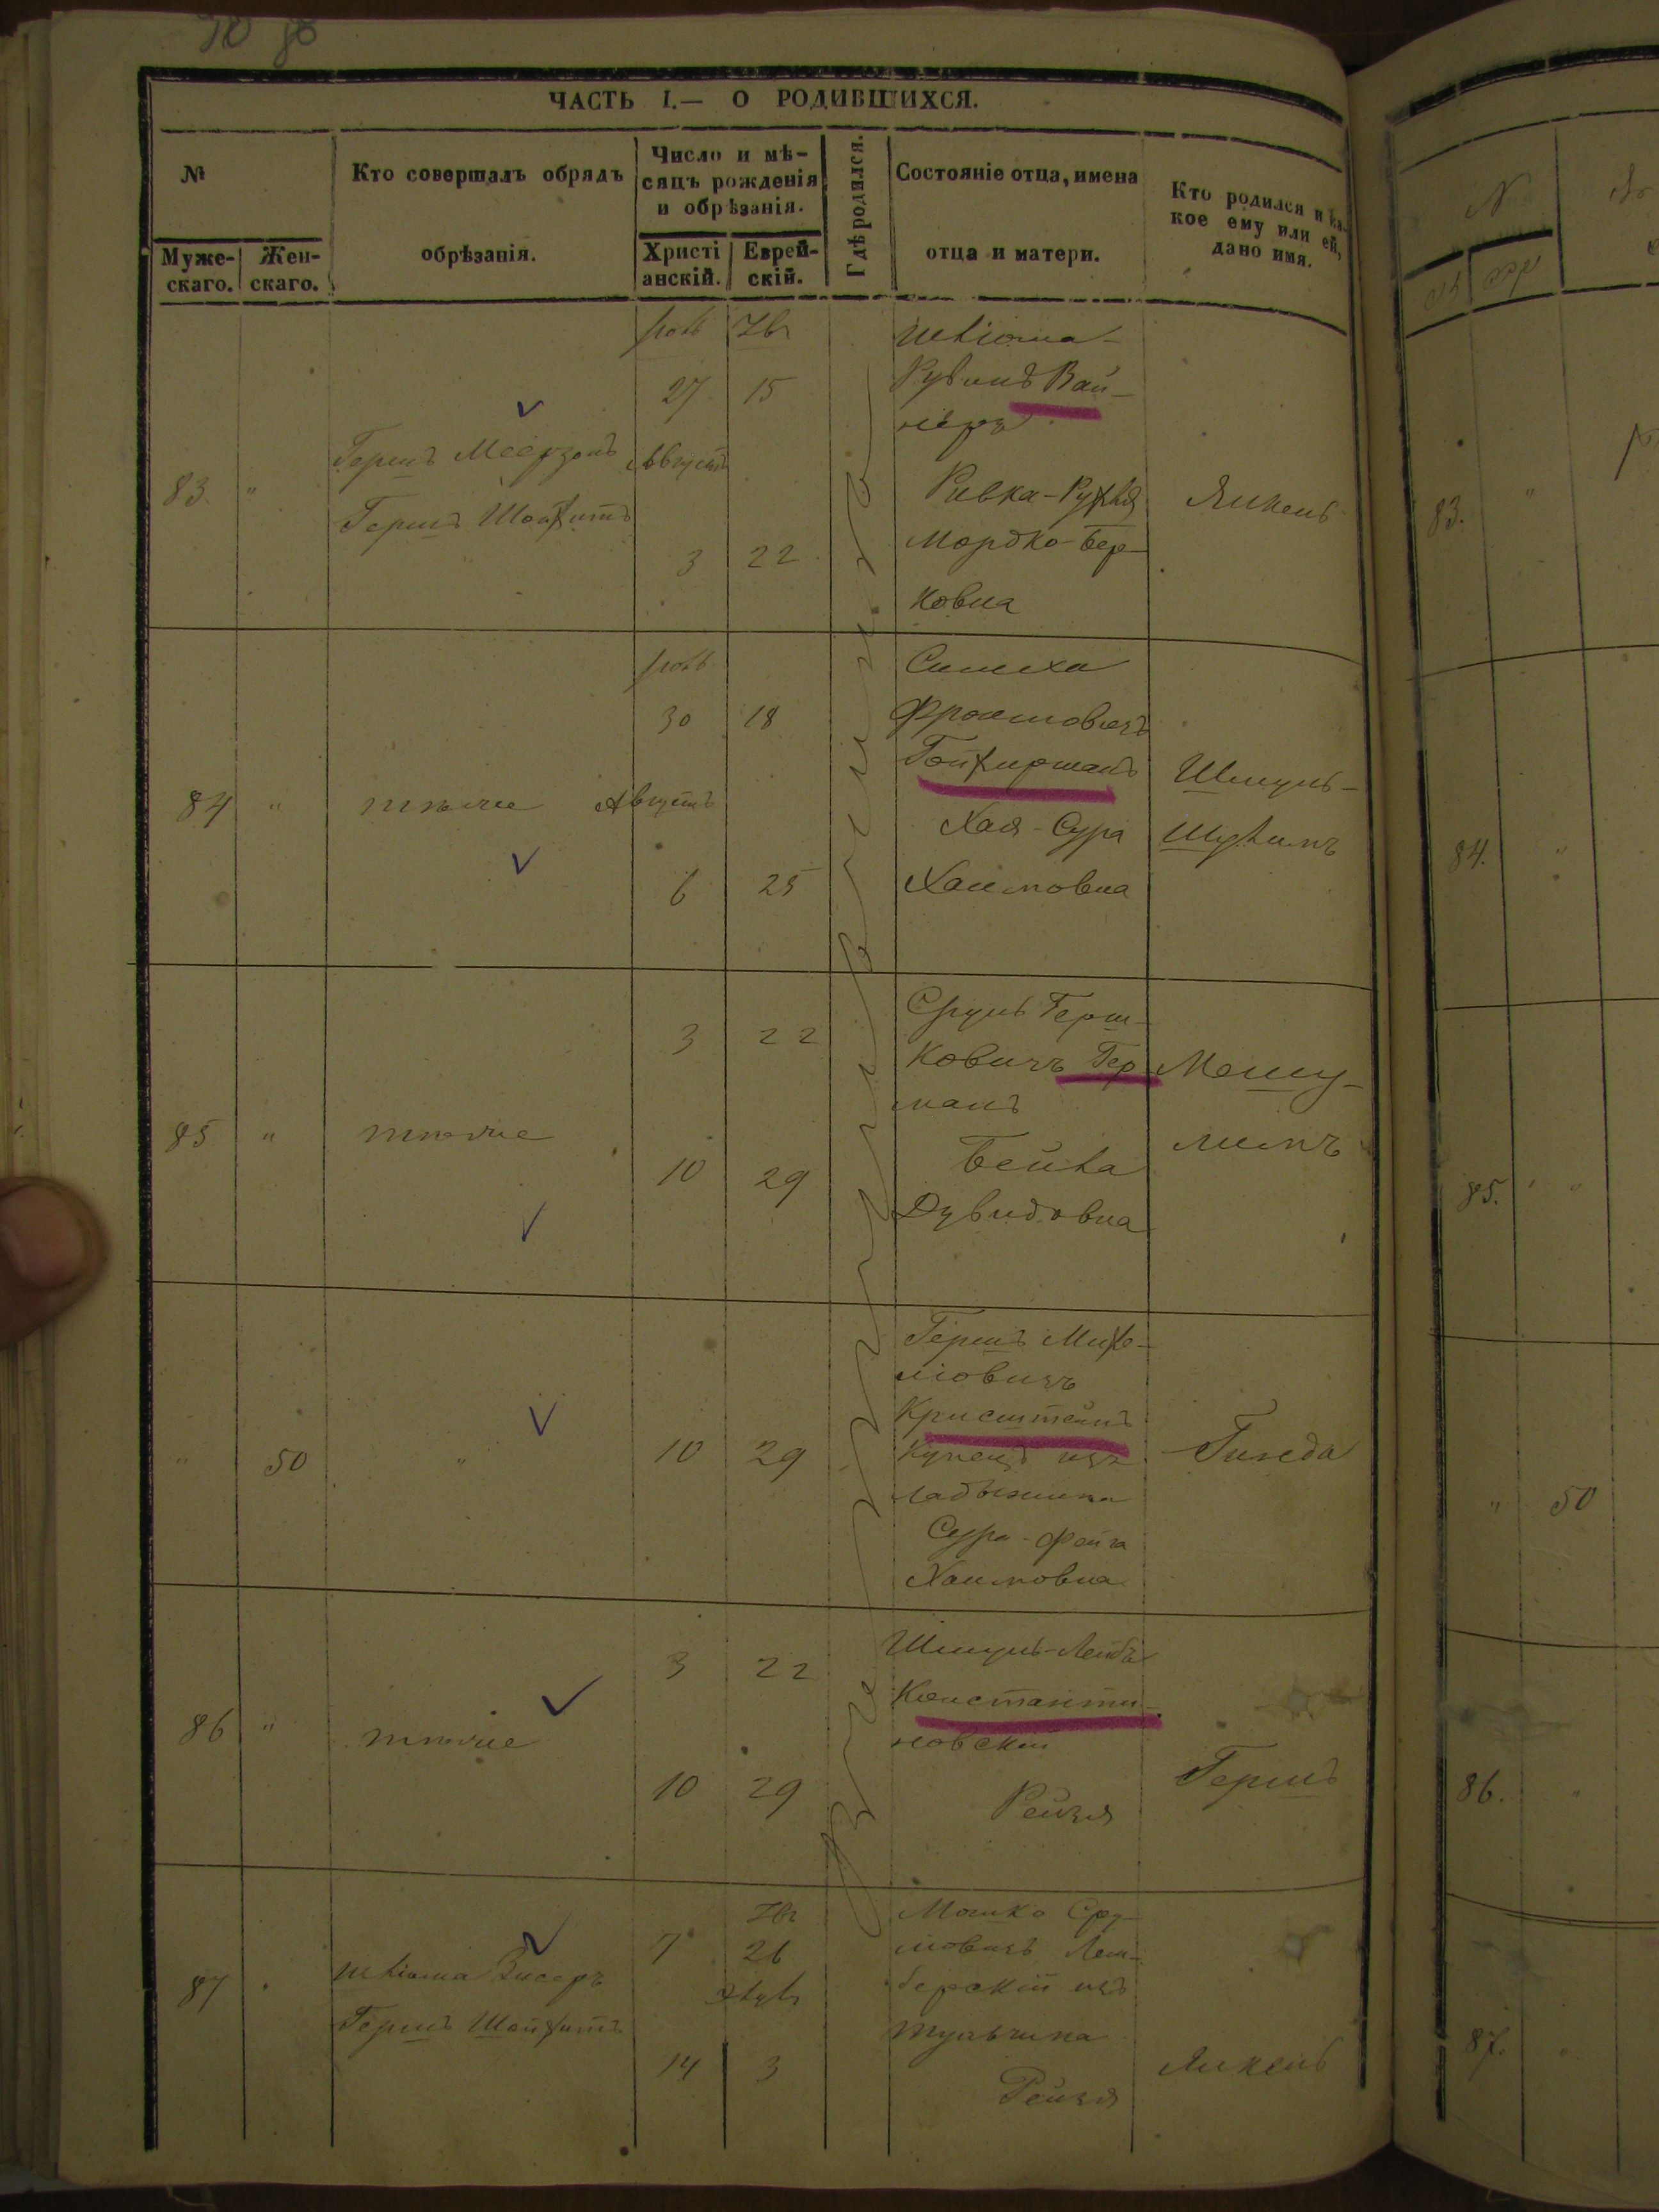 ЧАСТЬ I.— О РОДИВШИХСЯ.
№
Муже-
скаго.
Жен-
скаго.
Кто совершалъ обрядъ
обрѣзанія.
Число и мѣ-
сяцъ рожденія
и обрѣзанія.
Христі
анскій.
Еврей-
скій.
Гдѣ родился.
Состояніе отца, имена
отца и матери.
Кто родился и ка-
кое ему или ей,
дано имя.
83. "
Герш Меерзонъ
Герш Шойхитъ
27 15
Августъ
3 22
Рувинъ Вай-
неръ
Ривка-Рухля
Мордко-Бер-
ковна
Янкель
84 "
тѣ же
30 18
Августъ
6 25
Симха
Фроимовичъ
Гойхирманъ
Хая-Сура
Хаимовна
Шмуль-
85 "
тѣ же
3 22
10 29
Сруль Герш-
ковичъ Гер
манъ
Бейла
Дувидовна
Мешу-
лимъ
" 50
"
10 29
Гершъ Михе-
лiовичъ
Кришштейнъ
Купецъ изъ
Ладыжина
Сура-Фейга
Хаимовна
Гинеда
86 "
тѣ же
3 22
10 29
Шмуль-Лейба
Константи-
новский
Рейзя
Гершъ
87
Гершъ Шойхитъ
7 26
14 3
Мошко Сру-
лiовичъ Лем-
берскiй изъ
Тульчина
Рейзя
Янкель
83. "
84. "
85. "
" 50
86. "
87. "